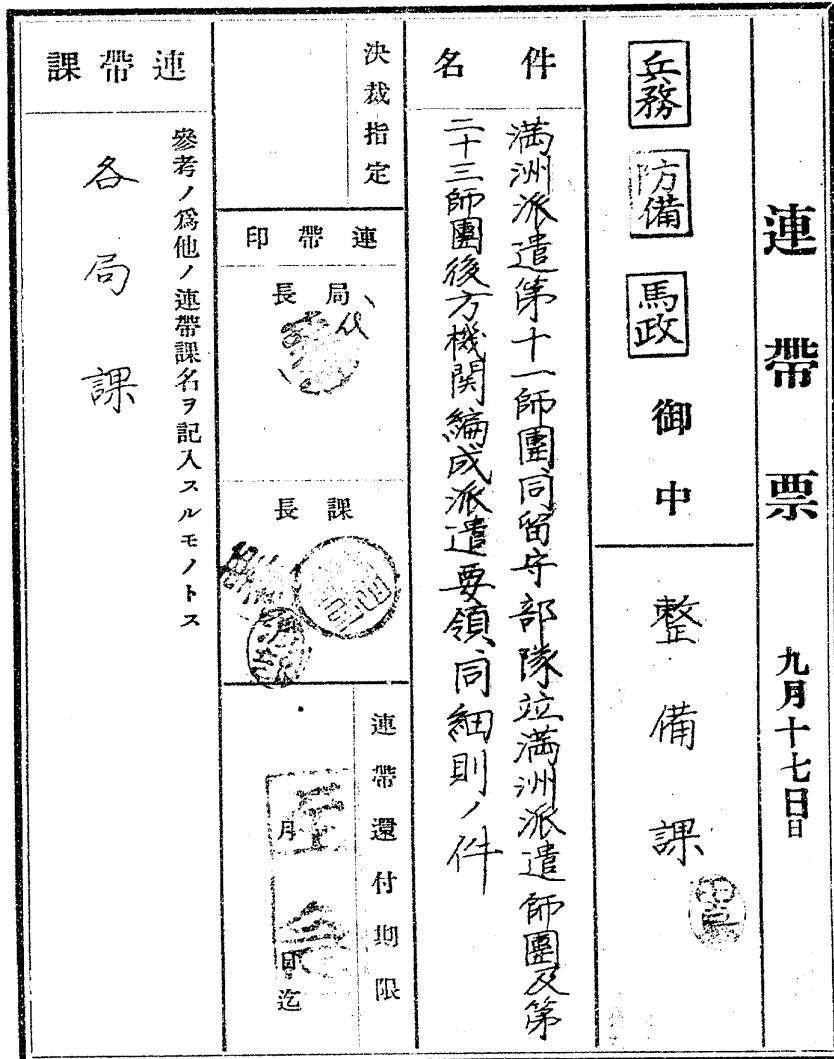 連帶票 九月十七日日
兵務 防備 馬政 御中
整備課
件名
滿洲派遣第十一師團同留守部隊竝滿洲派遣師團及第
二十三師團後方機関編成派遣要領、同細則ノ件
決裁指定
連帶印
局長
課長
連帶還付期限
至急
月 日迄
連帶課
參考ノ爲他ノ連帶課名ヲ記入スルモノトス
各局課